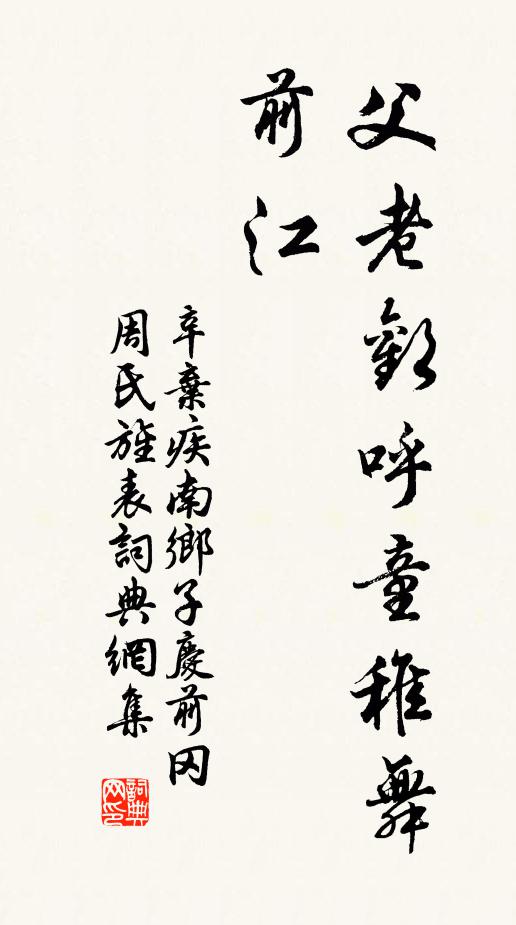 父老歡呼童稚舞
前江
辛棄疾南鄉子慶前岡
周氏旌表詞典網集
詞典
网印